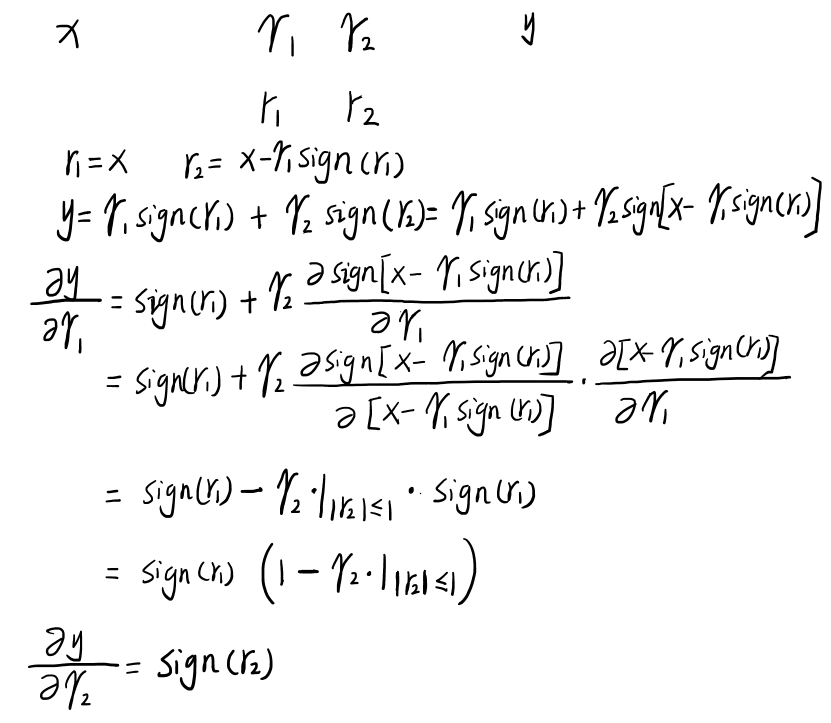 x γ₁ γ₂ y
r₁ r₂
r₁ = x r₂ = x - γ₁ sign(r₁)
y = γ₁ sign(r₁) + γ₂ sign(r₂) = γ₁ sign(r₁) + γ₂ sign[x - γ₁ sign(r₁)]
∂y/∂γ₁ = sign(r₁) + γ₂ ∂sign[x - γ₁ sign(r₁)]/∂γ₁
= sign(r₁) + γ₂ ∂sign[x - γ₁ sign(r₁)]/∂[x - γ₁ sign(r₁)] · ∂[x - γ₁ sign(r₁)]/∂γ₁
= sign(r₁) - γ₂ · 1_{|r₂|≤1} · sign(r₁)
= sign(r₁) (1 - γ₂ · 1_{|r₂|≤1})
∂y/∂γ₂ = sign(r₂)